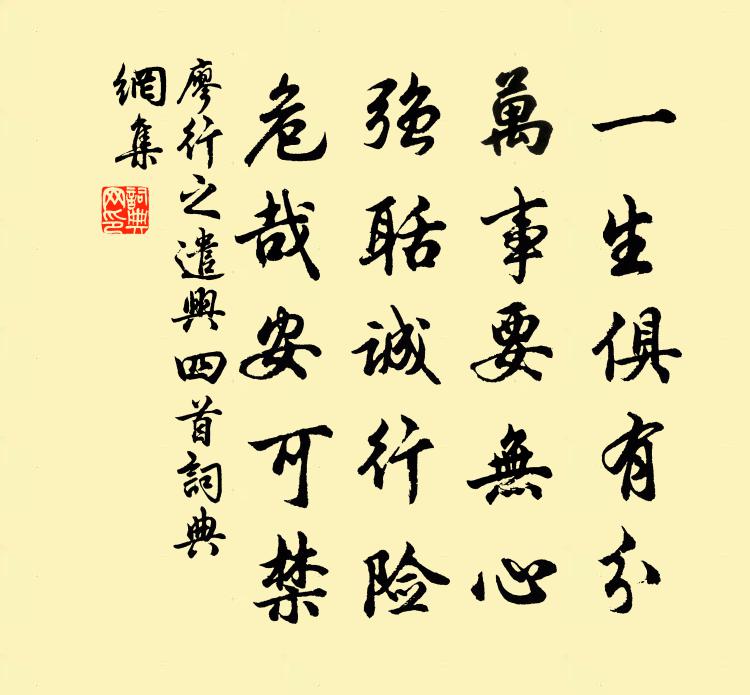 一生俱有分
萬事要無心
强聒诚行险
危哉安可禁
廖行之遣興四首詞典
網集
詞典
网印